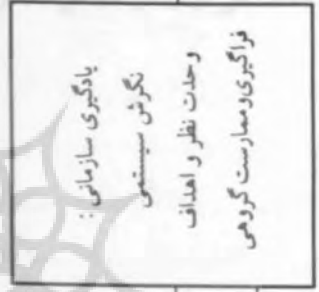 یادگیری سازمانی :
نگرش سیستمی
وحدت نظر و اهداف
فراگیری و ممارست گروهی